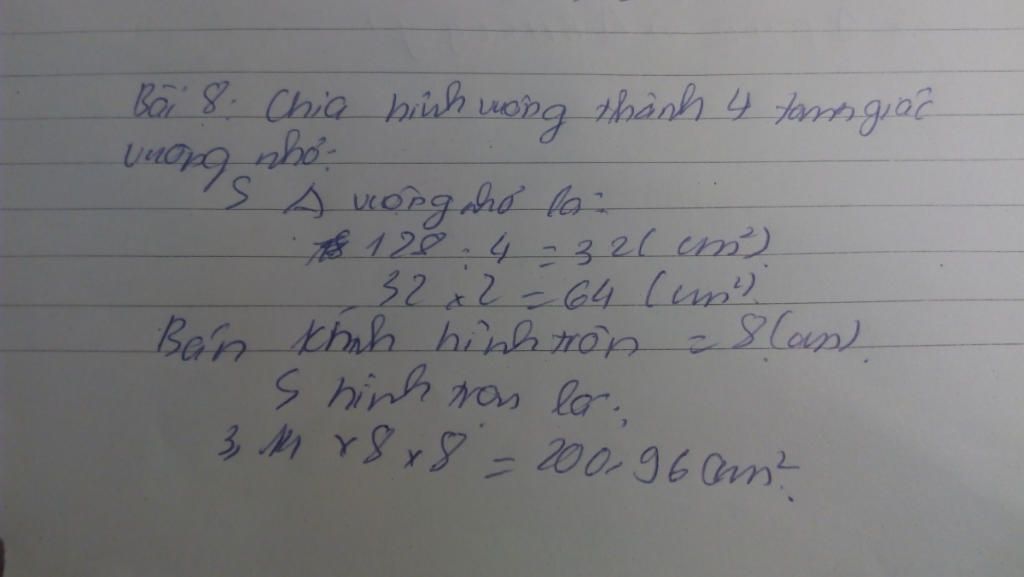 Bài 8: Chia hình vuông thành 4 tam giác
vuông nhỏ:
S Δ vuông nhỏ là:
128 : 4 = 32 (cm²)
32 x 2 = 64 (cm²)
Bán kính hình tròn = 8 (cm)
S hình tròn là:
3,14 x 8 x 8 = 200,96 cm²